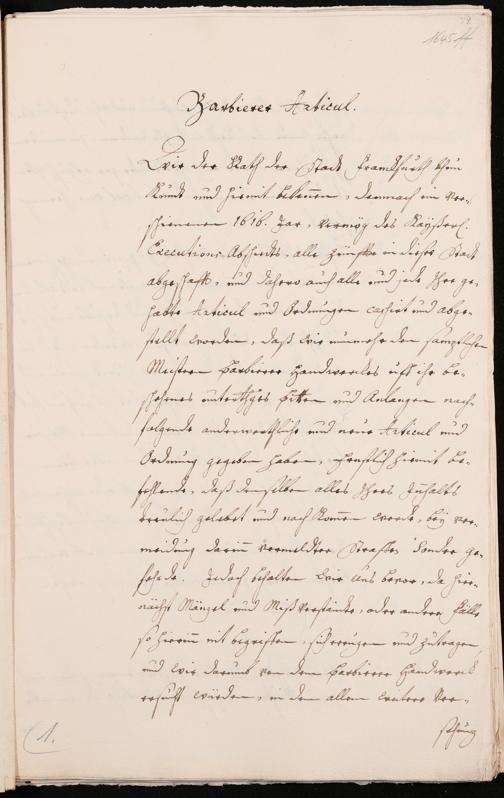 1645 ff
Barbierer Articul.
Wir der Rath der Statt Franckfurth thun
Kundt und hiermit bekennen, demnach im ver-
schienenen 1616. Jar, vermög des Kayserl.
Executions Abschiedts, alle Zünffte in dieser Statt
abgeschafft, und dahero auch alle und jede Ihre ge-
habte Articul und Ordnungen cassirt und abge-
stellt worden, daß wir nunmehr den sämptlichen
Meistern Barbierer Handwercks uff ihr be-
schehenes unterthgs bitten und Anlangen nach-
folgende anderwertliche und neue Articul und
Ordnung gegeben haben, Ernstlich hiermit be-
fehlende, daß denselben alles Ihres Inhalts
treulich gelebet und nach kommen werde, bey ver-
meidung darinn vermeldter Straffe sonder ge-
fehrde. Jedoch behalten wir uns bevor, da hier-
nächst Mängel und Mißverstände, oder andere Fälle
so hierinn nit begriffen, sich ereugen und zutragen,
und wir darumb von dem Barbierer Handwerck
ersucht würden, in dem allem weitere Ver-
sehung
1.